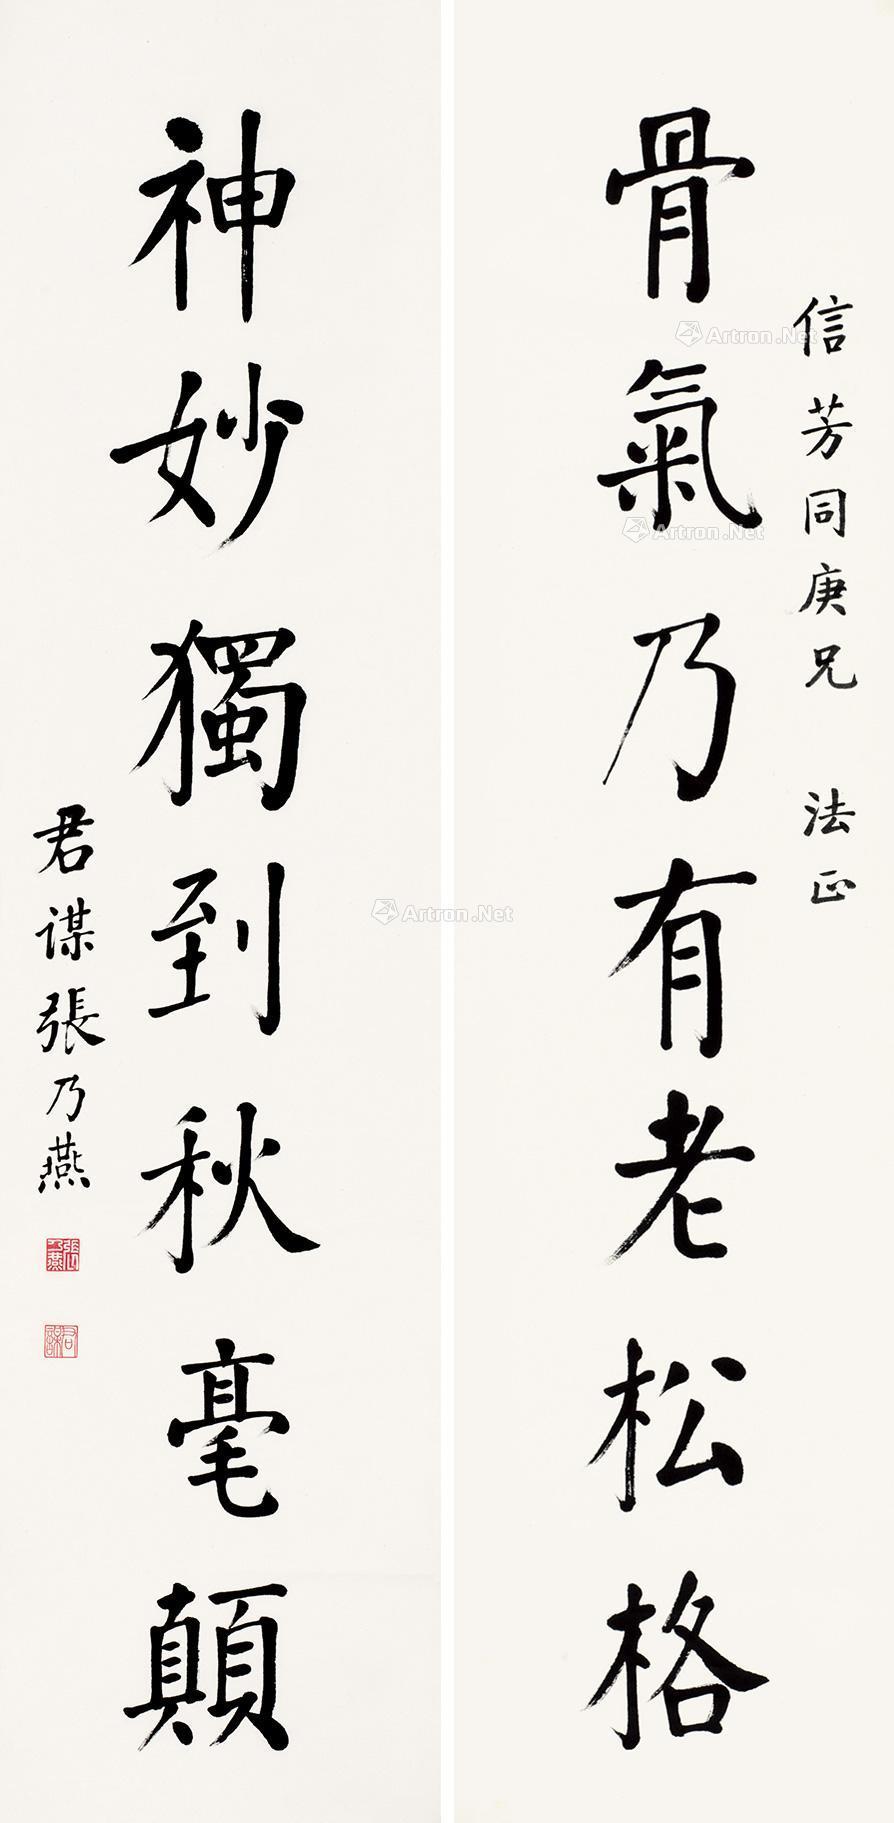 信芳同庚兄 法正
骨氣乃有老松格
神妙獨到秋毫顛
君謀張乃燕
張乃燕
君謀
Artron.Net
Artron.Net
Artron.Net